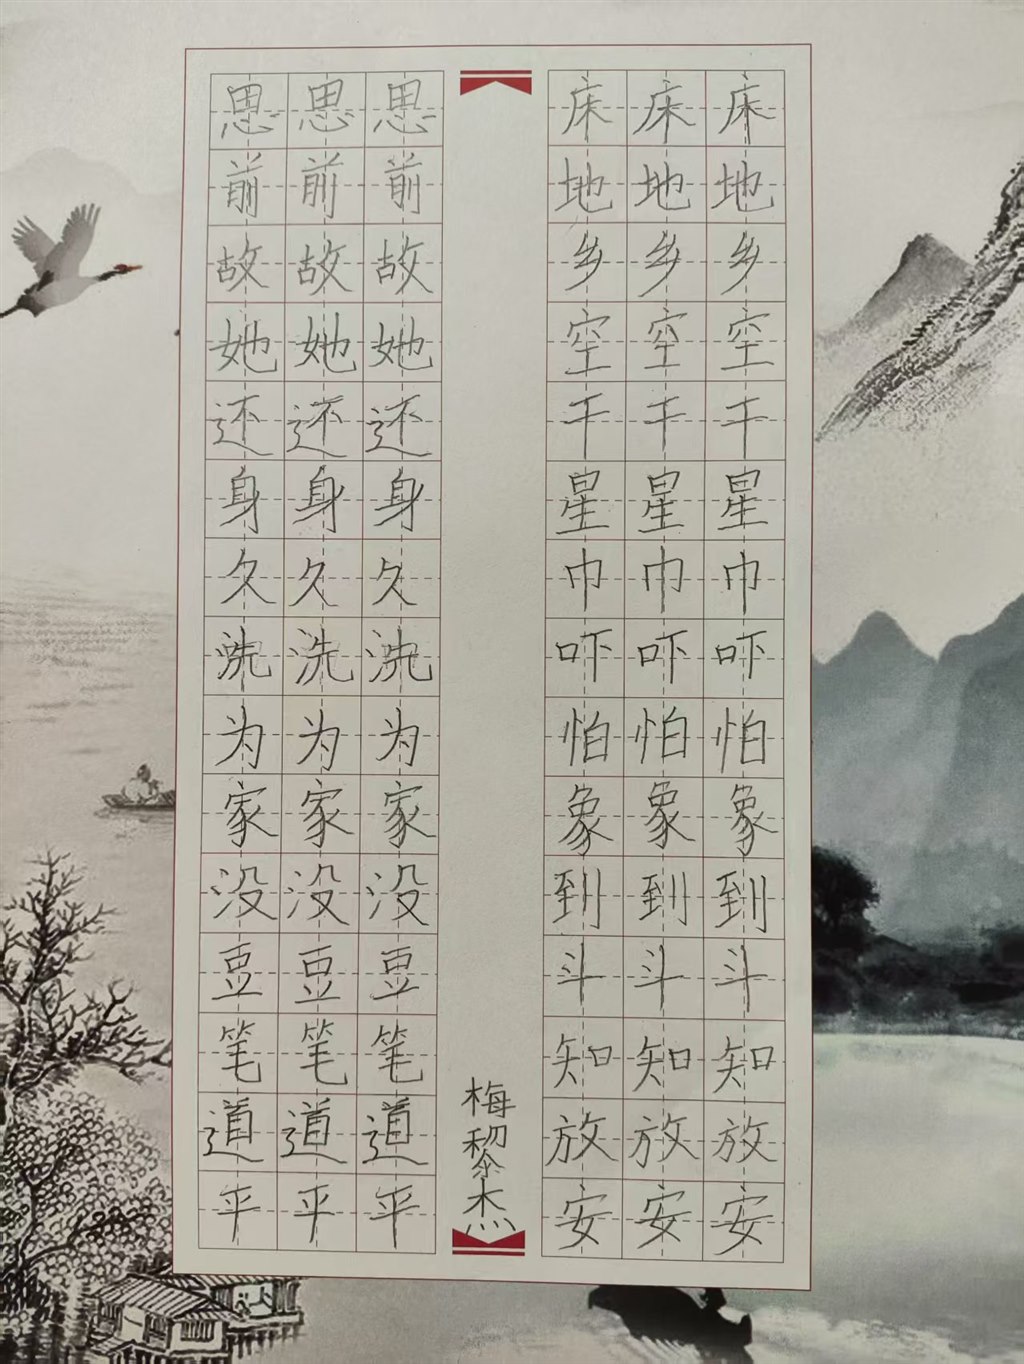 思思思 床床床
前前前 地地地
故故故 乡乡乡
她她她 空空空
还还还 干干干
身身身 星星星
久久久 巾巾巾
洗洗洗 吓吓吓
为为为 怕怕怕
家家家 象象象
没没没 到到到
豆豆豆 斗斗斗
笔笔笔 知知知
道道道 放放放
平平平 安安安
梅黎杰